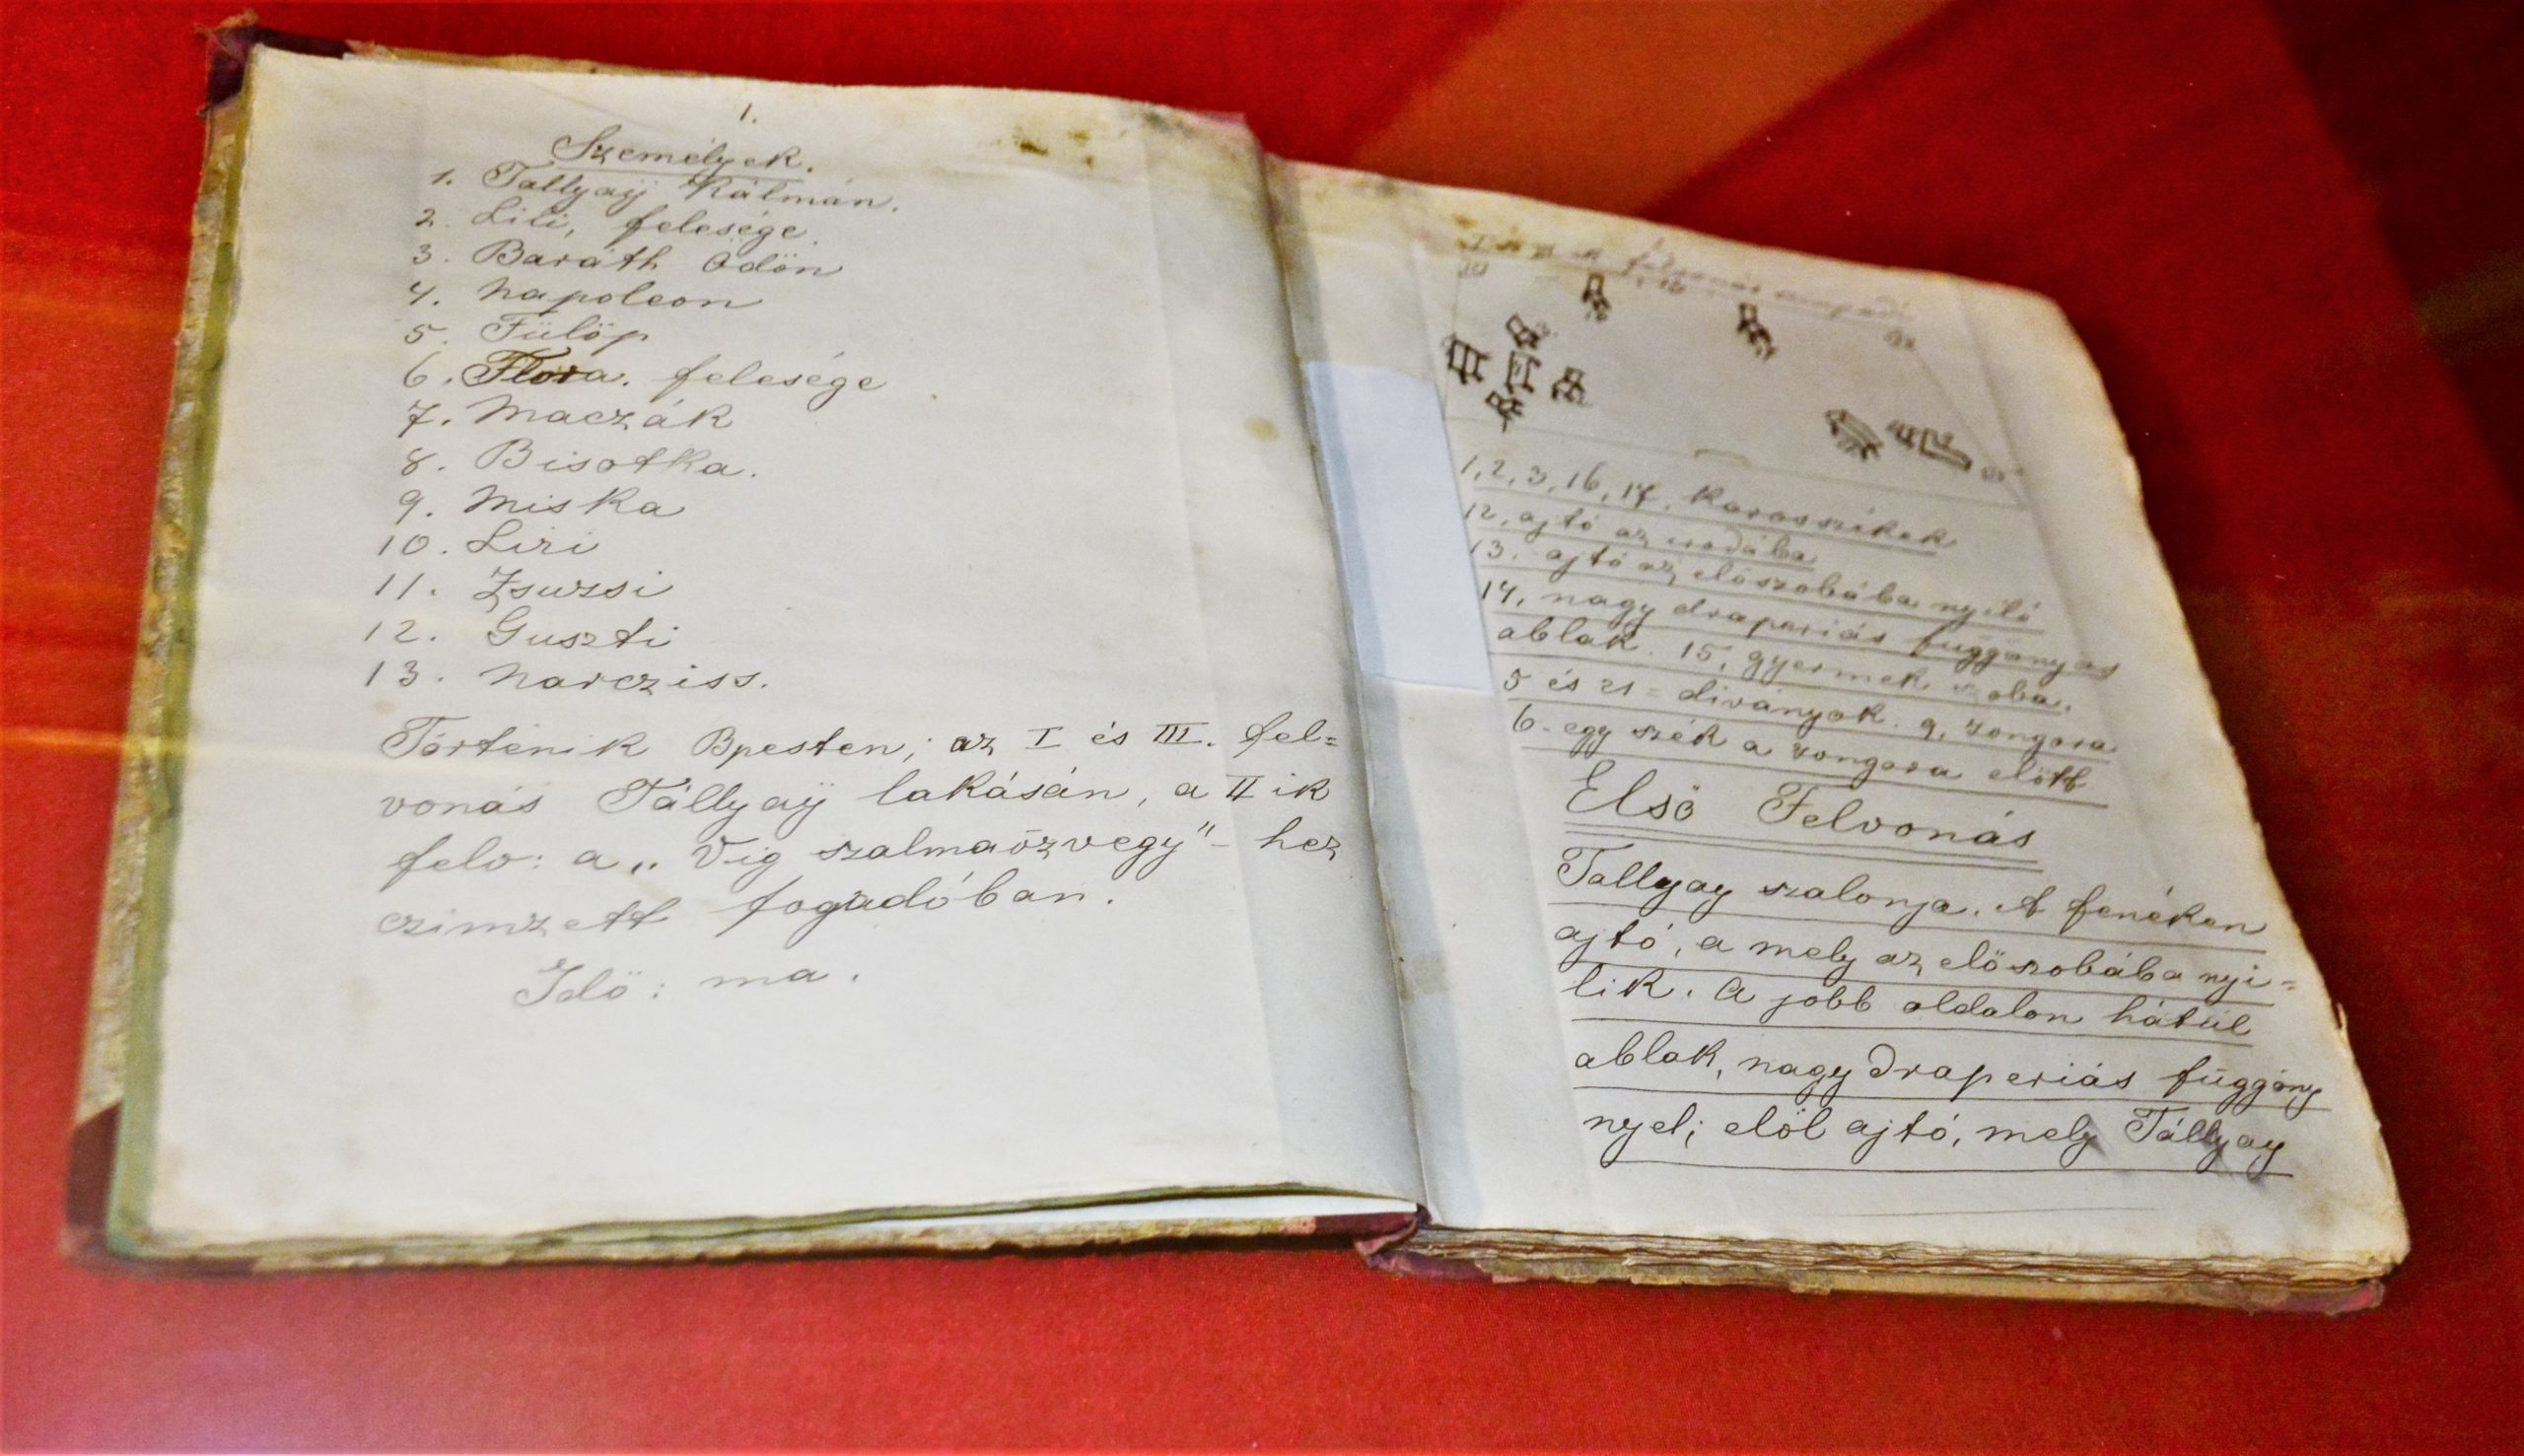 1.
Személyek.
1. Tallyaÿ Kálmán.
2. Lili, felesége.
3. Baráth Ödön
4. Napoleon
5. Fülöp
6. Flóra. felesége
7. Maczák
8. Bisotka.
9. Miska
10. Lizi
11. Zsuzsi
12. Guszti
13. Narcziss.
Történik Bpesten; az I és III. fel=
vonás Tállyaÿ lakásán, a II ik
felv: a „Vig szalmaözvegy"-hez
czimzett fogadóban.
Idö: ma.
felvonás
1, 2, 3, 16, 17, Karosszékek
12, ajtó az irodába
13. ajtó az elöszobába nyíló
14, nagy draperiás függönyös
ablak. 15, gyermek szoba.
5 és 21 = diványok. 9, zongora
6- egy szék a zongora elött
Elsö Felvonás
Tallyay szalonja. A fenéken
ajtó, a mely az elöszobába nyi=
lik. A jobb oldalon hátul
ablak, nagy draperiás függöny
nyel; elöl ajtó, mely Tállyay